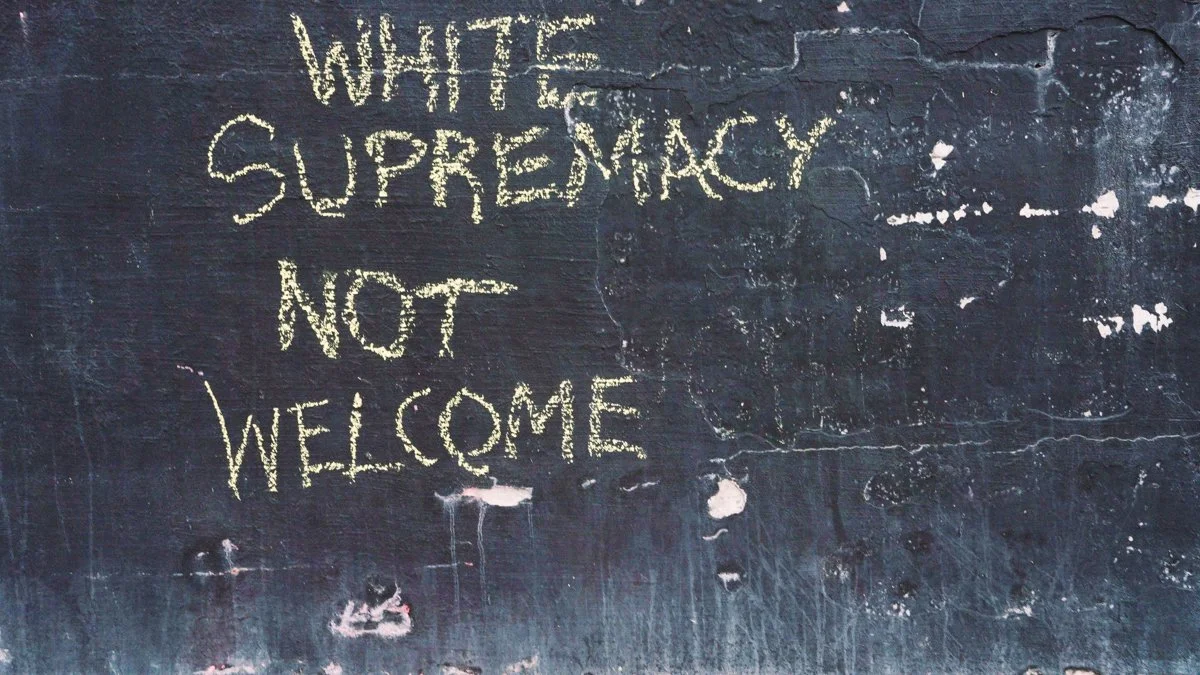 WHITE
SUPREMACY
NOT
WELCOME